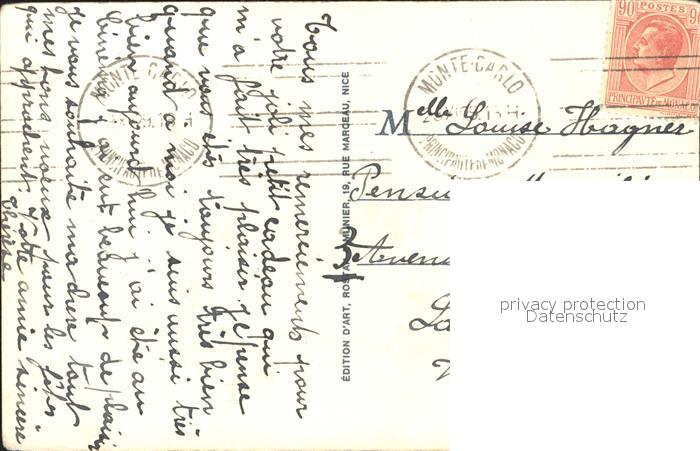 Tous mes remerciements pour
votre joli petit cadeau qui
m'a fait très plaisir. Je pense
que vous êtes toujours très bien
quand à moi je suis aussi très
bien aujourd'hui j'ai été au
cinéma j'ai eut beaucoup de plaisir
je vous souhaite ma chère tout
mes bons voeux pour les fêtes
qui approchent. Votre amie sincère
Thérèse
MONTE-CARLO
PRINCIPAUTÉ DE MONACO
ÉDITION D'ART, ROSTAN MUNIER, 19, RUE MARCEAU, NICE
MONTE-CARLO
PRINCIPAUTÉ DE MONACO
90 POSTES 90
PRINCIPAUTÉ DE MONACO
Melle Louise Hagner
Avenu
privacy protection
Datenschutz